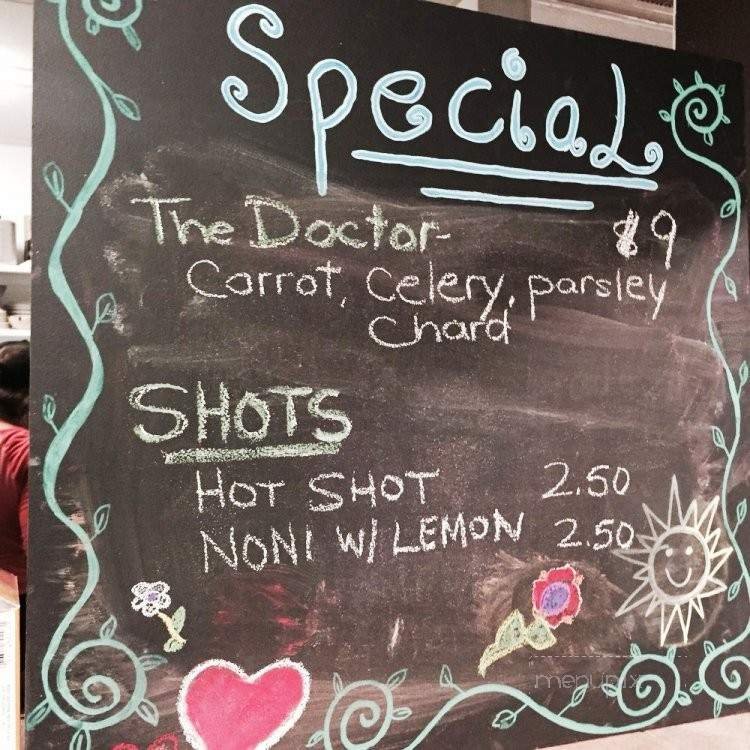 Special
The Doctor- $9
Carrot, Celery, parsley
Chard
SHOTS
HOT SHOT 2.50
NONI W/ LEMON 2.50
menupix